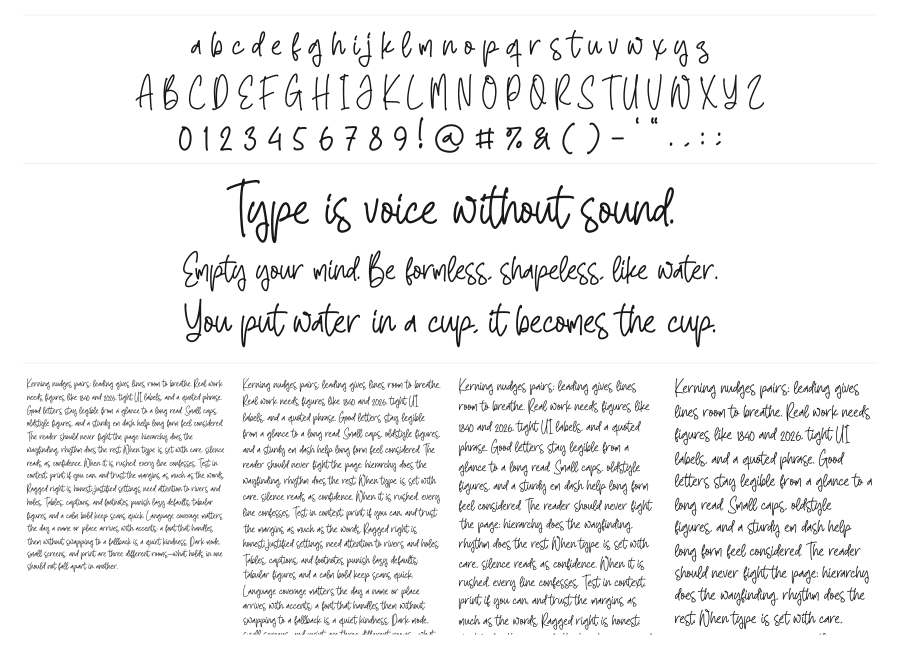 a b c d e f g h i j k l m n o p q r s t u v w x y z
A B C D E F G H I J K L M N O P Q R S T U V W X Y Z
0 1 2 3 4 5 6 7 8 9 ! @ # % & ( ) - ' " . , : ;
Type is voice without sound.
Empty your mind. Be formless, shapeless, like water.
You put water in a cup, it becomes the cup.
Kerning nudges pairs; leading gives lines room to breathe. Real work
needs figures like 1840 and 2026, tight UI labels, and a quoted phrase.
Good letters stay legible from a glance to a long read. Small caps,
oldstyle figures, and a sturdy en dash help long form feel considered.
The reader should never fight the page: hierarchy does the
wayfinding, rhythm does the rest. When type is set with care, silence
reads as confidence. When it is rushed, every line confesses. Test in
context, print if you can, and trust the margins as much as the words.
Ragged right is honest; justified settings need attention to rivers and
holes. Tables, captions, and footnotes punish lazy defaults; tabular
figures and a calm bold keep scans quick. Language coverage matters
the day a name or place arrives with accents; a font that handles
them without swapping to a fallback is a quiet kindness. Dark mode,
small screens, and print are three different rooms—what holds in one
should not fall apart in another.
Kerning nudges pairs; leading gives lines room to breathe.
Real work needs figures like 1840 and 2026, tight UI
labels, and a quoted phrase. Good letters stay legible
from a glance to a long read. Small caps, oldstyle figures,
and a sturdy en dash help long form feel considered. The
reader should never fight the page: hierarchy does the
wayfinding, rhythm does the rest. When type is set with
care, silence reads as confidence. When it is rushed, every
line confesses. Test in context, print if you can, and trust
the margins as much as the words. Ragged right is
honest; justified settings need attention to rivers and holes.
Tables, captions, and footnotes punish lazy defaults;
tabular figures and a calm bold keep scans quick.
Language coverage matters the day a name or place
arrives with accents; a font that handles them without
swapping to a fallback is a quiet kindness. Dark mode,
small screens, and print are three different rooms—what
Kerning nudges pairs; leading gives lines
room to breathe. Real work needs figures like
1840 and 2026, tight UI labels, and a quoted
phrase. Good letters stay legible from a
glance to a long read. Small caps, oldstyle
figures, and a sturdy en dash help long form
feel considered. The reader should never fight
the page: hierarchy does the wayfinding,
rhythm does the rest. When type is set with
care, silence reads as confidence. When it is
rushed, every line confesses. Test in context,
print if you can, and trust the margins as
much as the words. Ragged right is honest;
Kerning nudges pairs; leading gives
lines room to breathe. Real work needs
figures like 1840 and 2026, tight UI
labels, and a quoted phrase. Good
letters stay legible from a glance to a
long read. Small caps, oldstyle
figures, and a sturdy en dash help
long form feel considered. The reader
should never fight the page: hierarchy
does the wayfinding, rhythm does the
rest. When type is set with care,